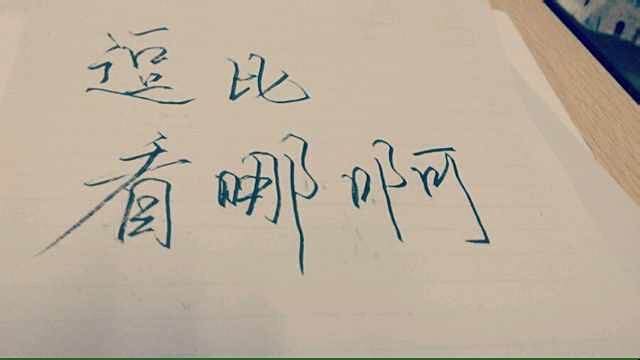 逗比
看哪啊